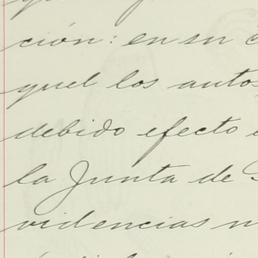 ción: en su
quel los autos
debido efecto
la Junta de
videncias